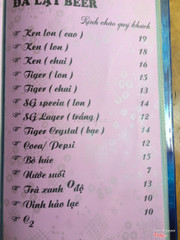 ĐÀ LẠT BEER
Kính chào quý khách
Ken lon (cao) 19
Ken (lon) 18
Ken (chai) 16
Tiger (lon) 15
Tiger (chai) 13
SG specia (lon) 14
SG Lager (trắng) 12
Tiger Crystal (bạc) 14
Coca/ Pepsi 12
Bò húc 15
Nước suối 7
Trà xanh 0 độ 13
Vĩnh hảo lạc 10
C2 10